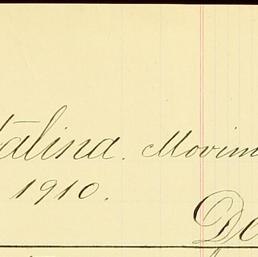 talina. Movim
1910.
De